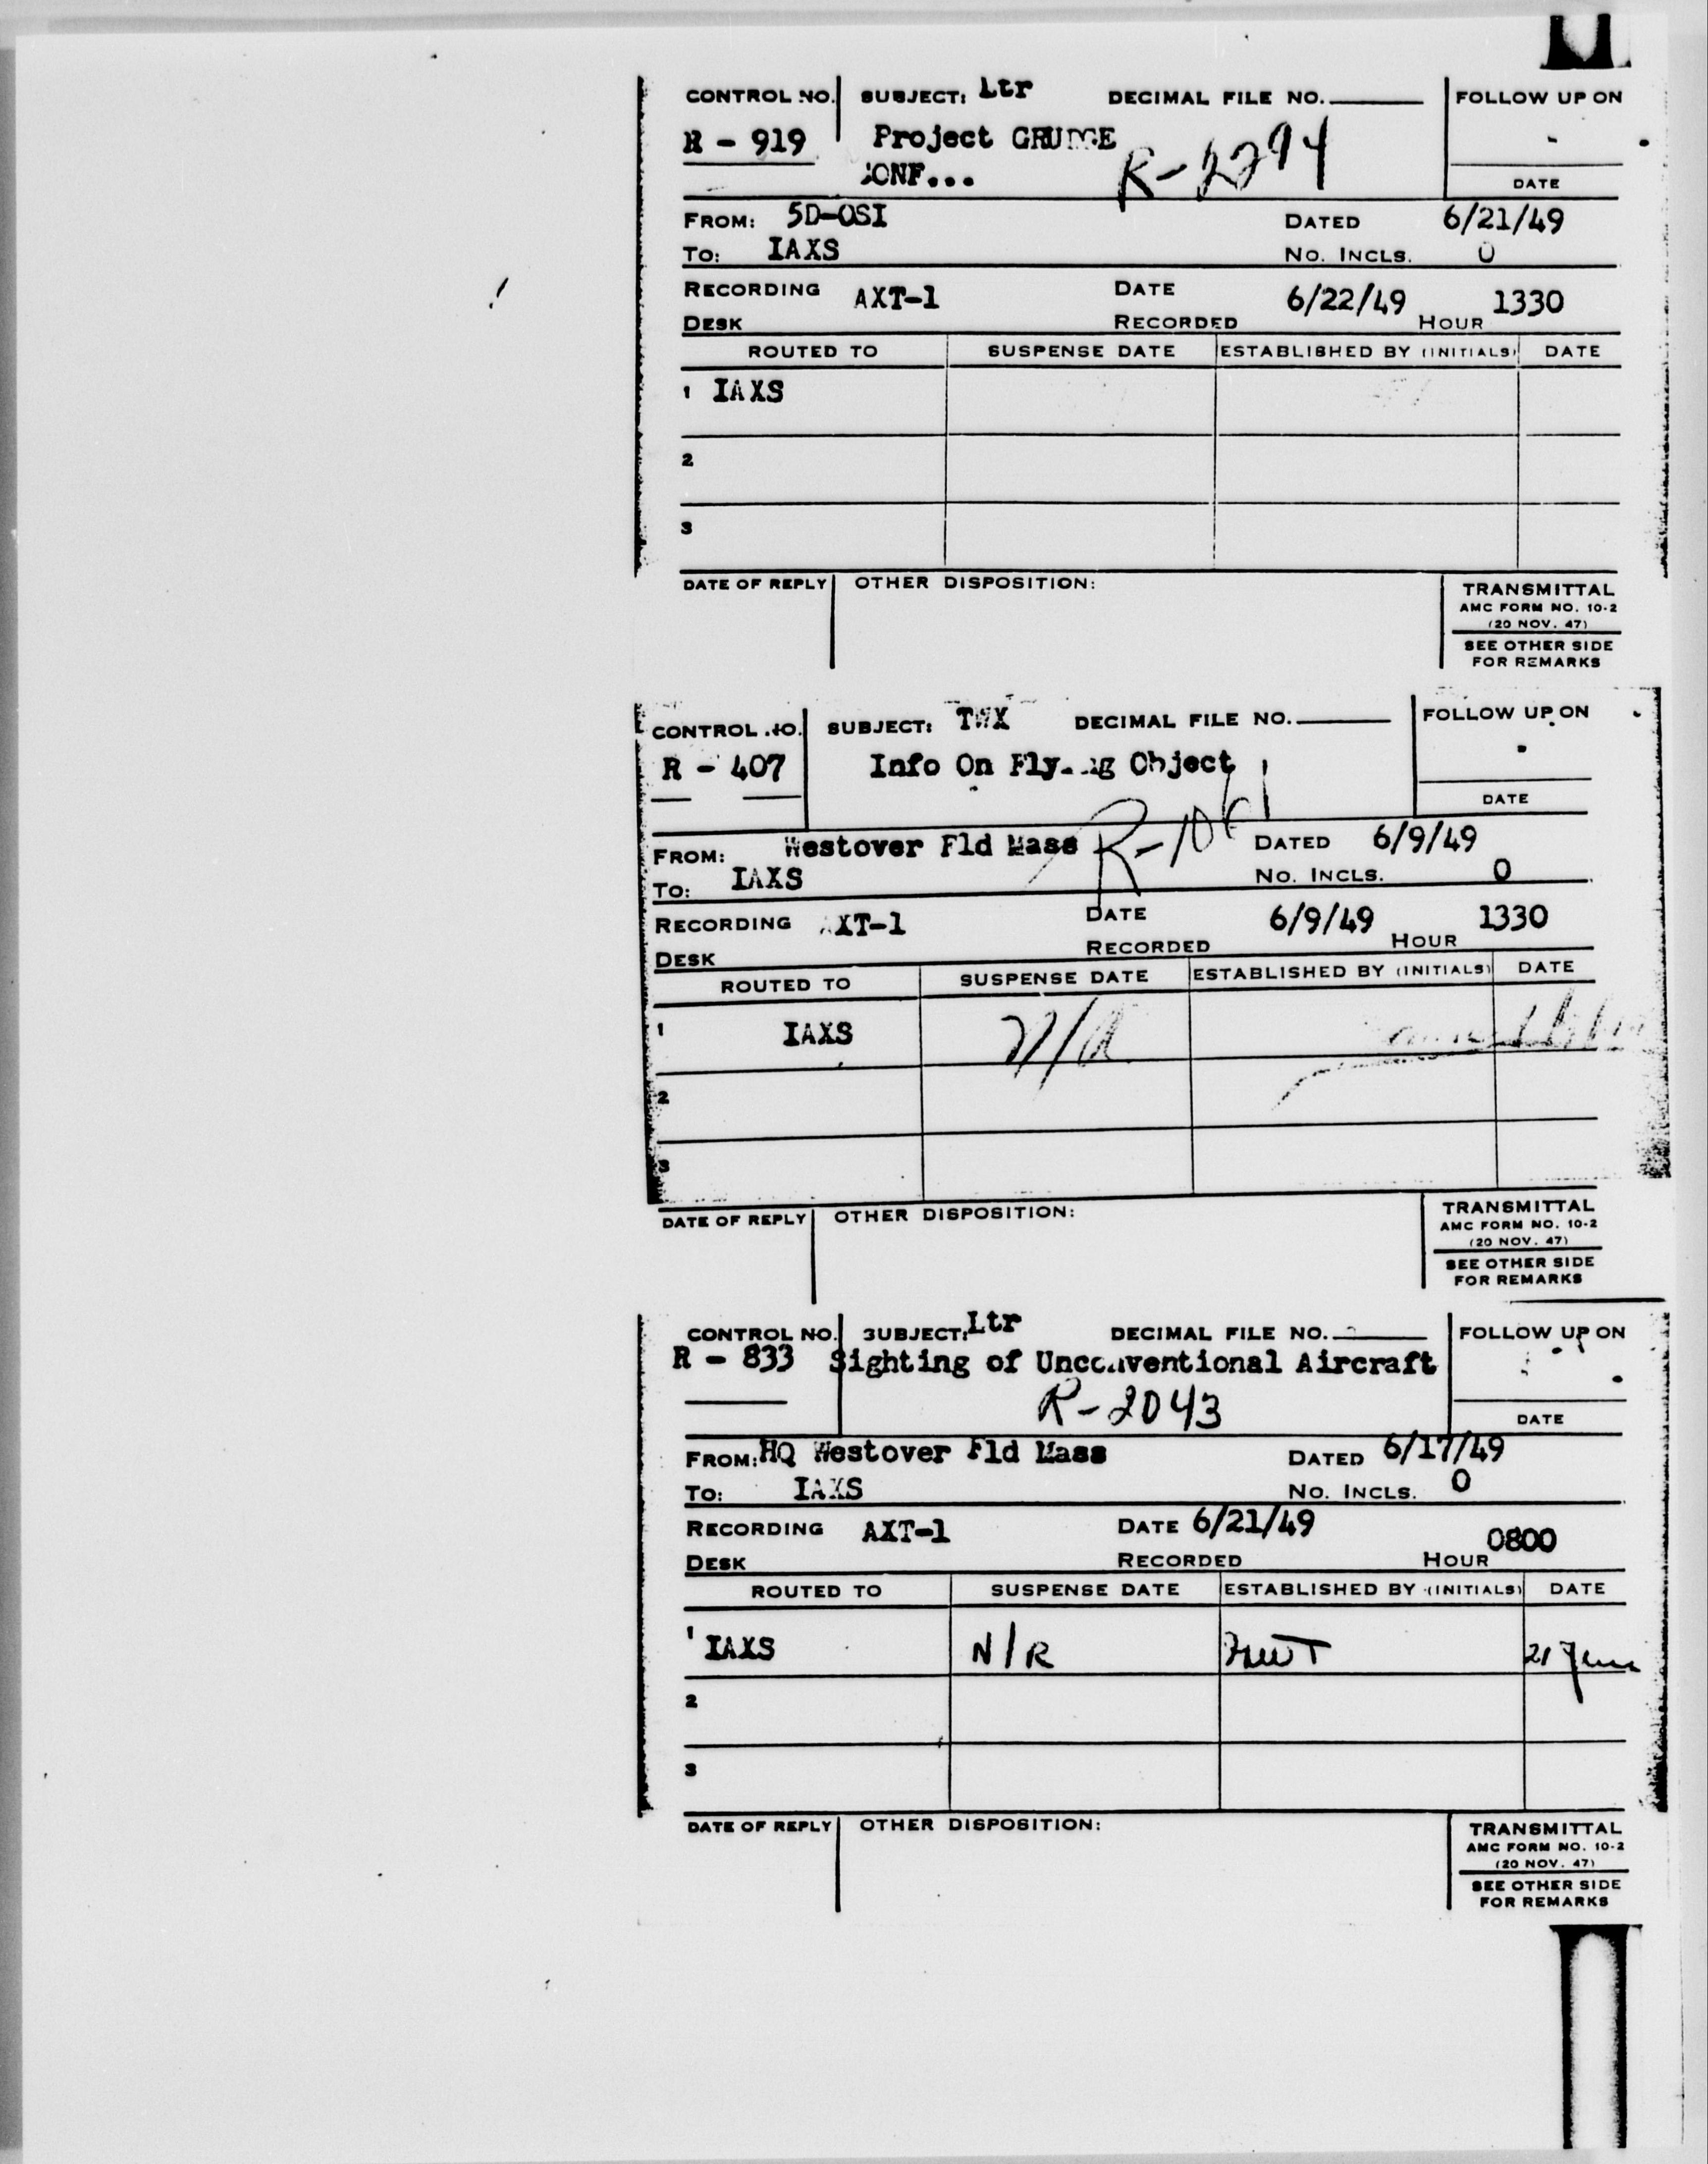 CONTROL NO. SUBJECT: Ltr DECIMAL FILE NO. FOLLOW UP ON
R - 919 Project GRUDGE
CONF... R-2294
DATE
FROM: 5D-OSI DATED 6/21/49
TO: IAXS NO. INCLS. 0
RECORDING AXT-1 DATE 6/22/49 1330
DESK RECORDED HOUR
ROUTED TO SUSPENSE DATE ESTABLISHED BY (INITIALS) DATE
1 IAXS
2
3
DATE OF REPLY OTHER DISPOSITION: TRANSMITTAL
AMC FORM NO. 10-2
(20 NOV. 47)
SEE OTHER SIDE
FOR REMARKS
CONTROL NO. SUBJECT: TWX DECIMAL FILE NO. FOLLOW UP ON
R - 407 Info On Flying Object
DATE
R-1061
FROM: Westover Fld Mass DATED 6/9/49
TO: IAXS NO. INCLS. 0
RECORDING AXT-1 DATE 6/9/49 1330
DESK RECORDED HOUR
ROUTED TO SUSPENSE DATE ESTABLISHED BY (INITIALS) DATE
1 IAXS N/R
2
3
DATE OF REPLY OTHER DISPOSITION: TRANSMITTAL
AMC FORM NO. 10-2
(20 NOV. 47)
SEE OTHER SIDE
FOR REMARKS
CONTROL NO. SUBJECT: Ltr DECIMAL FILE NO. FOLLOW UP ON
R - 833 Sighting of Unconventional Aircraft
R-2043
DATE
FROM: HQ Westover Fld Mass DATED 6/17/49
TO: IAXS NO. INCLS. 0
RECORDING AXT-1 DATE 6/21/49 0800
DESK RECORDED HOUR
ROUTED TO SUSPENSE DATE ESTABLISHED BY (INITIALS) DATE
1 IAXS N/R 21 June
2
3
DATE OF REPLY OTHER DISPOSITION: TRANSMITTAL
AMC FORM NO. 10-2
(20 NOV. 47)
SEE OTHER SIDE
FOR REMARKS